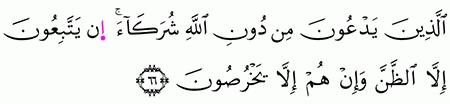 ٱلَّذِينَ يَدْعُونَ مِن دُونِ ٱللَّهِ شُرَكَآءَ ۚ إِن يَتَّبِعُونَ
إِلَّا ٱلظَّنَّ وَإِنْ هُمْ إِلَّا يَخْرُصُونَ ﴿٦٦﴾